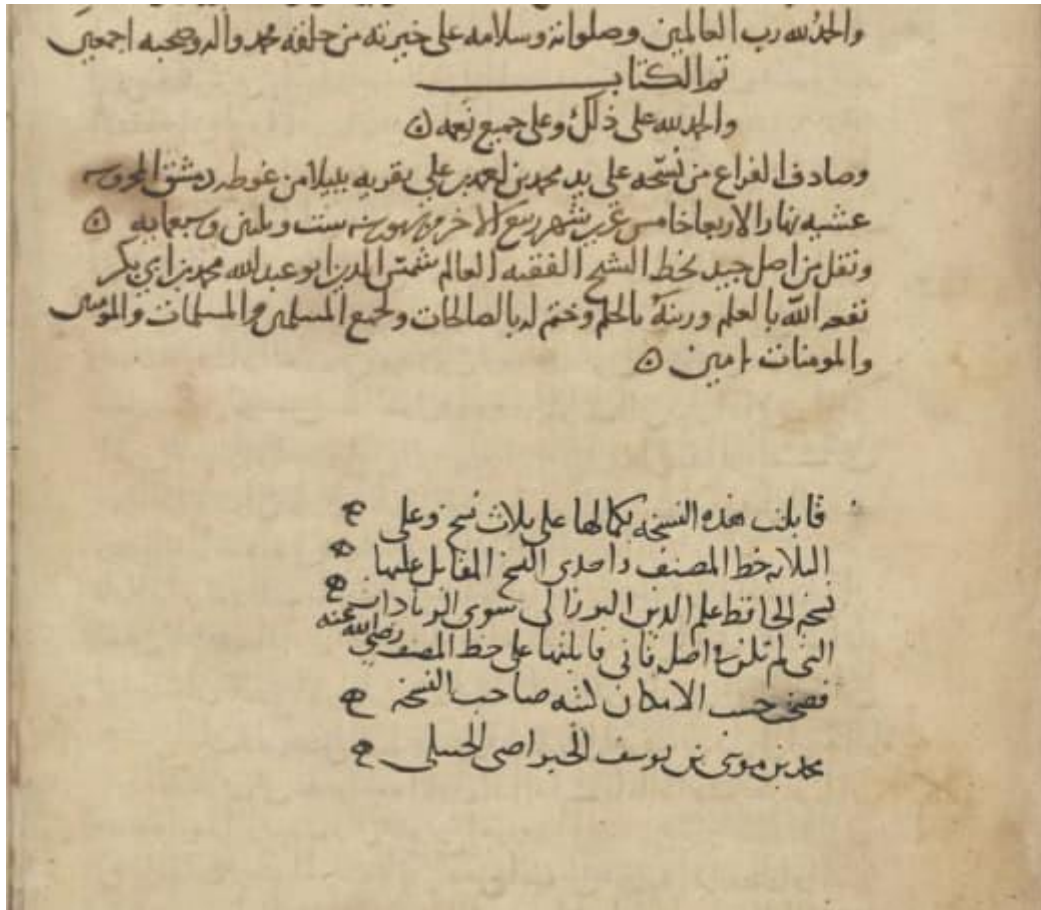 والحمد لله رب العالمين وصلواته وسلامه على خيرته من خلقه محمد واله وصحبه اجمعين
تم الكتاب
والحمد لله على ذلك وعلى جميع نعمه
وصادف الفراغ من نسخه على يد محمد بن علي بقريه من غوطه دمشق المحروسه
عشيه نهار الاربعا خامس شهر ربيع الاخر سنه ست وثلثين وسبعمايه
ونقل من اصل جيد بخط الشيخ الفقيه العالم شمس الدين ابو عبد الله محمد بن ابي بكر
نفعه الله بالعلم وزينه بالحلم وختم له بالصالحات ولجميع المسلمين والمسلمات والمومنين
والمومنات امين
قابلت هذه النسخه بكمالها على ثلاث نسخ وعلى
الثلاثه خط المصنف واحدى النسخ المقابل عليها
نسخه الحافظ علم الدين البرزالي سوى الزيادات
التي لم تكن في اصله فاني قابلتها على خط المصنف رضي الله عنه
فصح حسب الامكان كتبه صاحب النسخه
محمد بن موسى بن يوسف الحنبلي